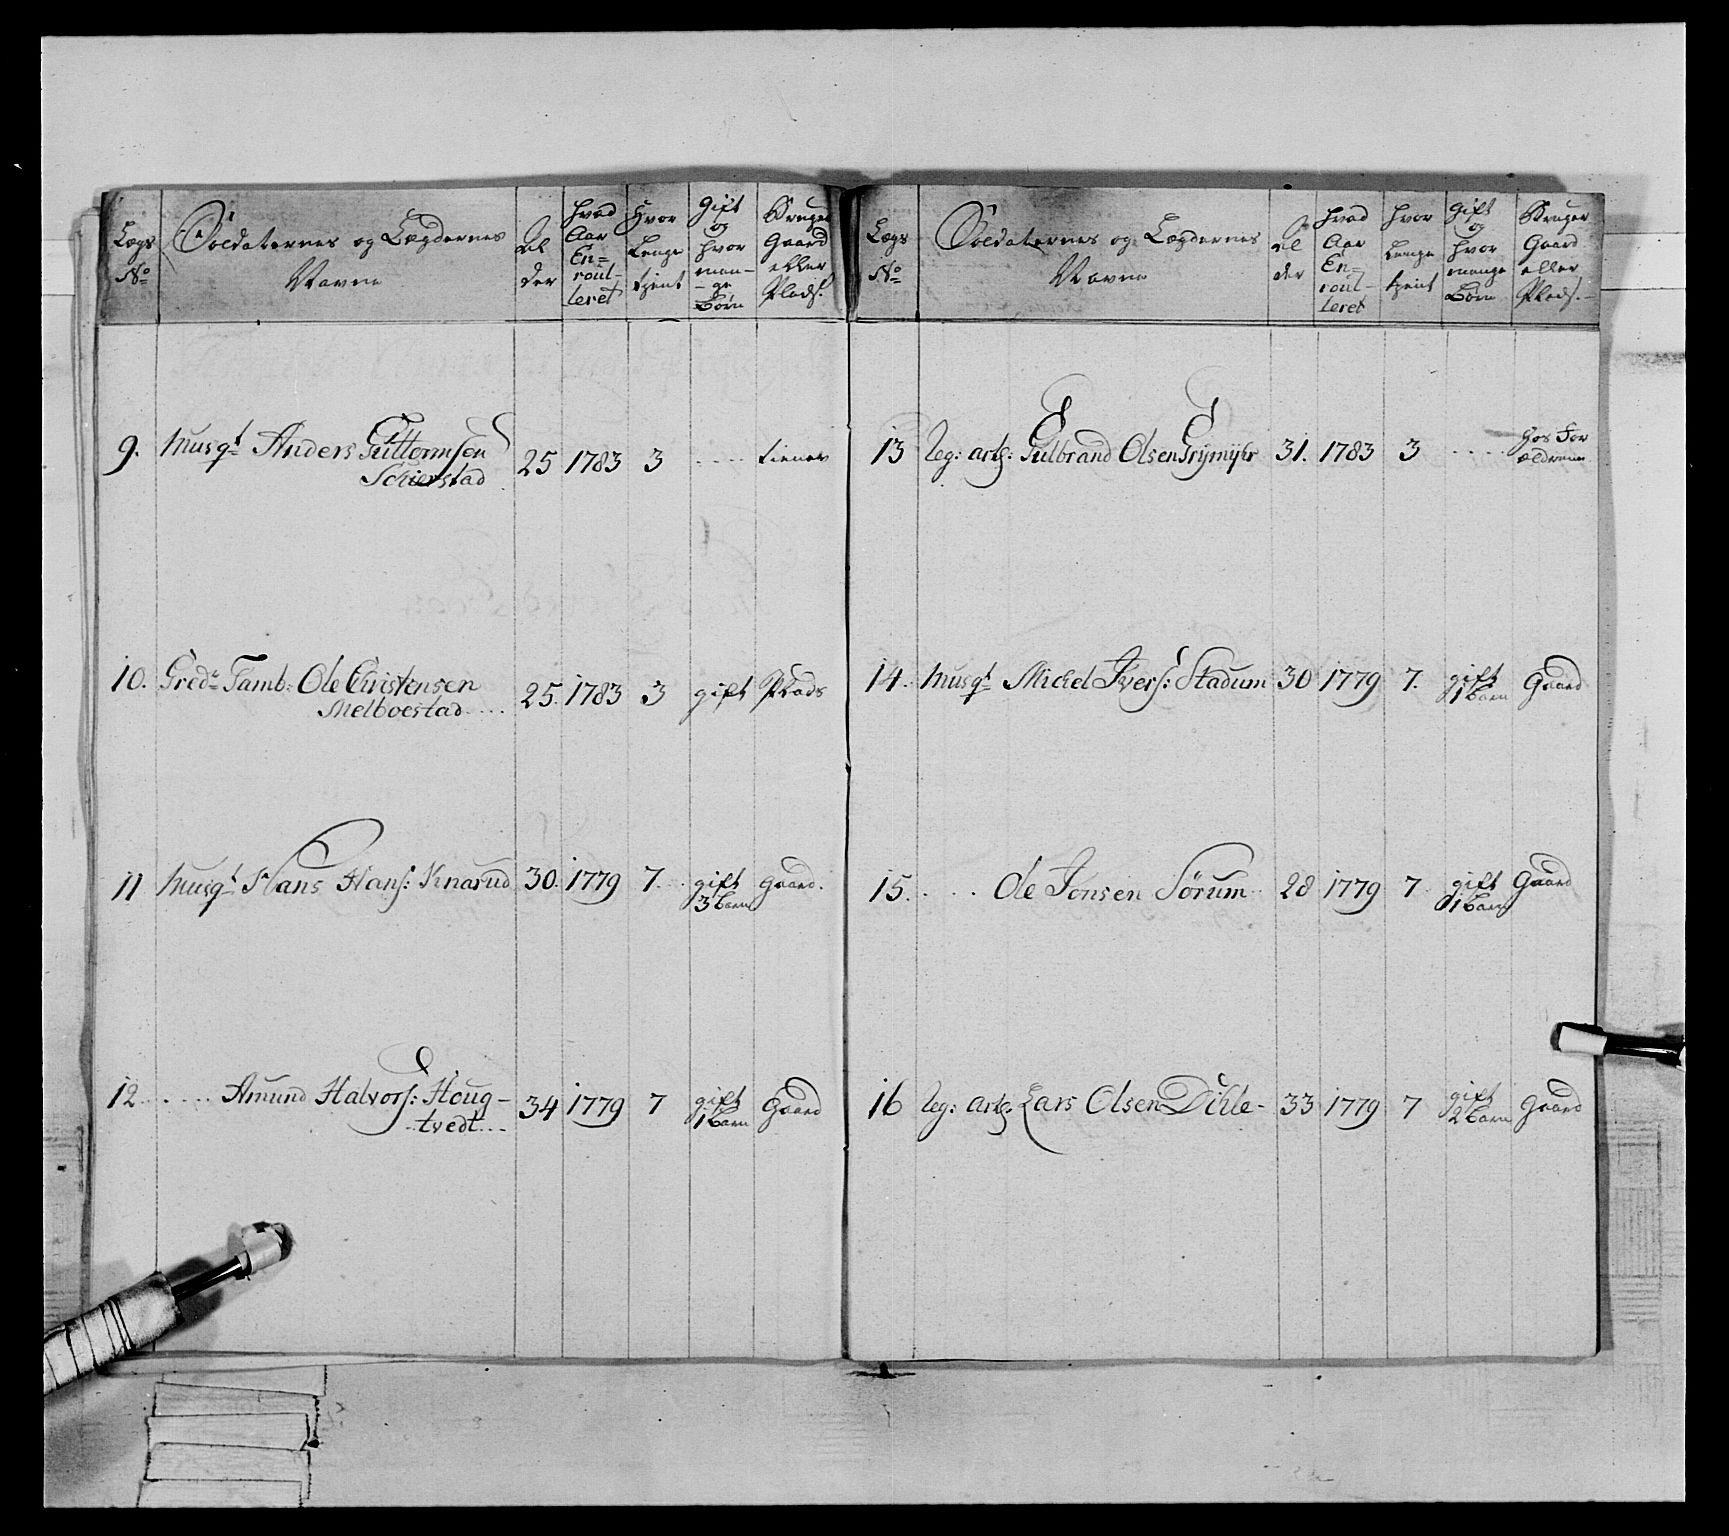 Lægs No
Soldaternes og Lægdernes Navne
Al der
Hvad Aar En= roul- leret
Hvor Lenge tient
Gift og hvor man- ge Børn
Bruger Gaard eller Plads.
9. Musqt Anders Guttormsen 25 1783 3 .... tiener
Schierstad
10. Gredr Tamb: Ole Christensen 25. 1783 3 gift Plads
Melboestad....
11 Musqt Hans Hans: Knarud 30. 1779 7. gift Gaard.
3 barn
12 ..... Amund Halvors: Houg- 34 1779 7 gift Gaard
tvedt... 1 barn
Lægs No
Soldaternes og Lægdernes Navne
Al der
Hvad Aar En= roul- leret
Hvor Lenge tient
Gift og hvor mange Børn
Bruger Gaard eller Plads.-
13 Reg: Artz: Gulbrand Olsen 31. 1783 3 ..... hos For
ældrene
14. Musqt Michel Ivers: Stadum 30 1779 7. gift Gaard
1 barn
15. ... Ole Jonsen Sørum 28 1779 7 gift Gaard
1 barn
16 Reg: Artz. Lars Olsen Dihle- 33 1779 7 gift Gaard
2 barn